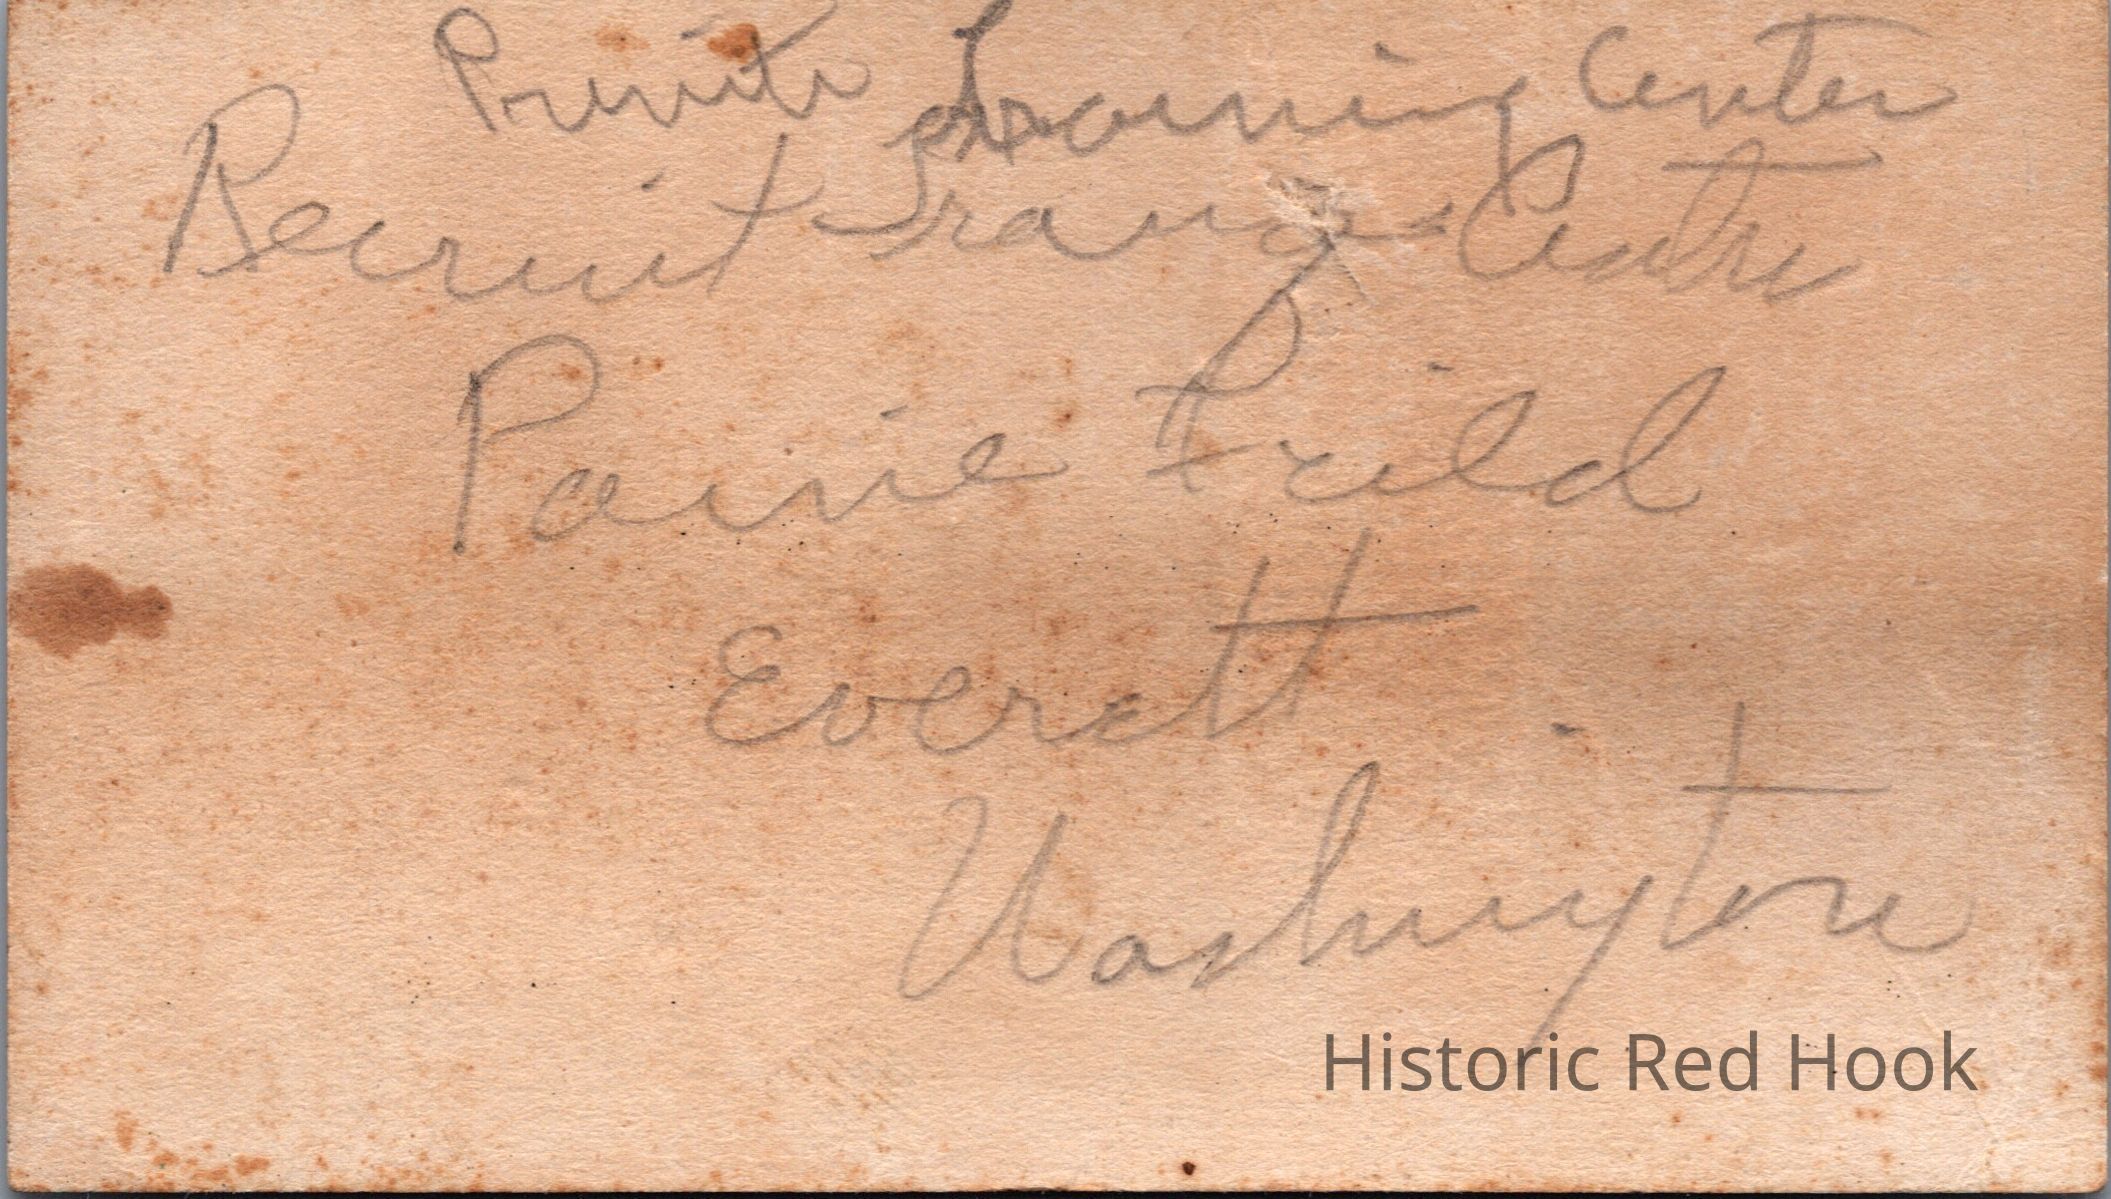 Private Training Center
Recruit Training Centre
Paine Feild
Everett
Washington
Historic Red Hook